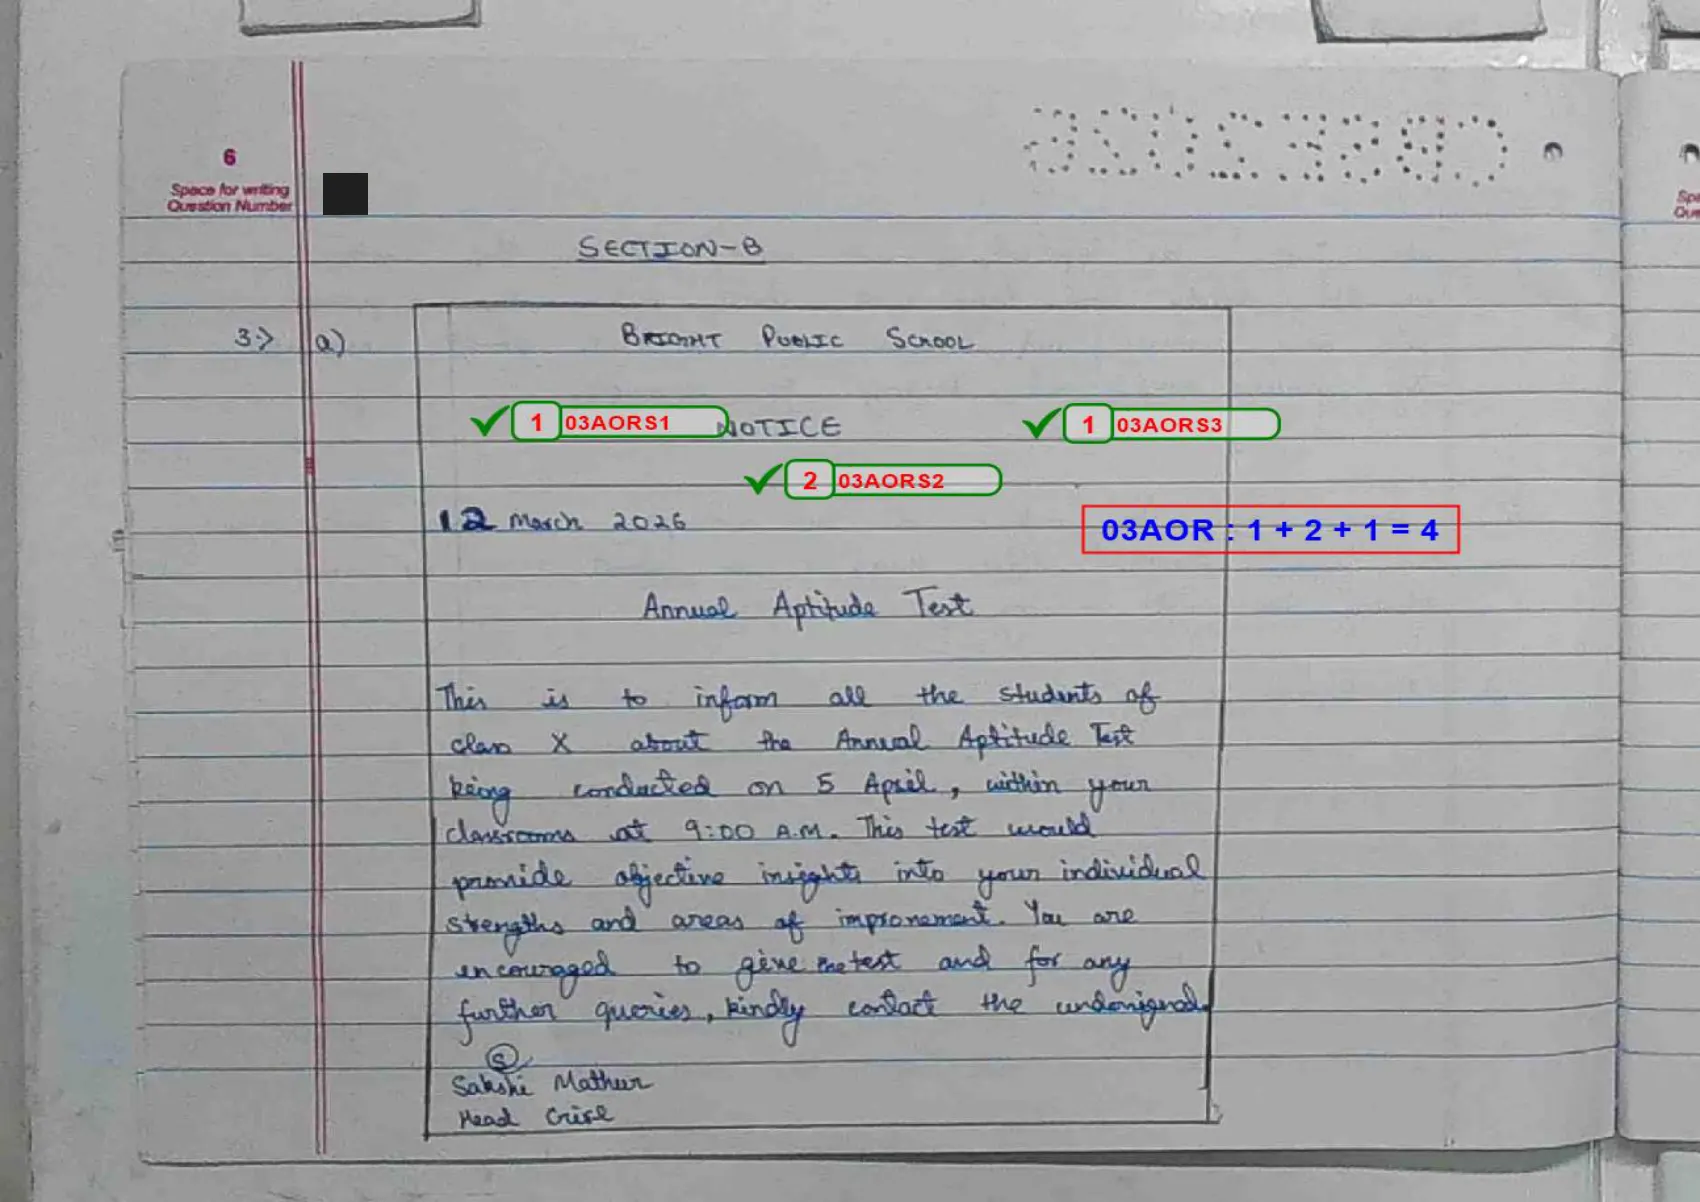 6
Space for writing
Question Number
SECTION-B
3.> a)
BRIGHT PUBLIC SCHOOL
1 03AORS1 NOTICE 1 03AORS3
2 03AORS2
12 March 2026
03AOR : 1 + 2 + 1 = 4
Annual Aptitude Test
This is to inform all the students of
class X about the Annual Aptitude Test
being conducted on 5 April, within your
classrooms at 9:00 A.M. This test would
provide objective insights into your individual
strengths and areas of improvement. You are
encouraged to give the test and for any
further queries, kindly contact the undersigned.
S
Sakshi Mathur
Head Girl